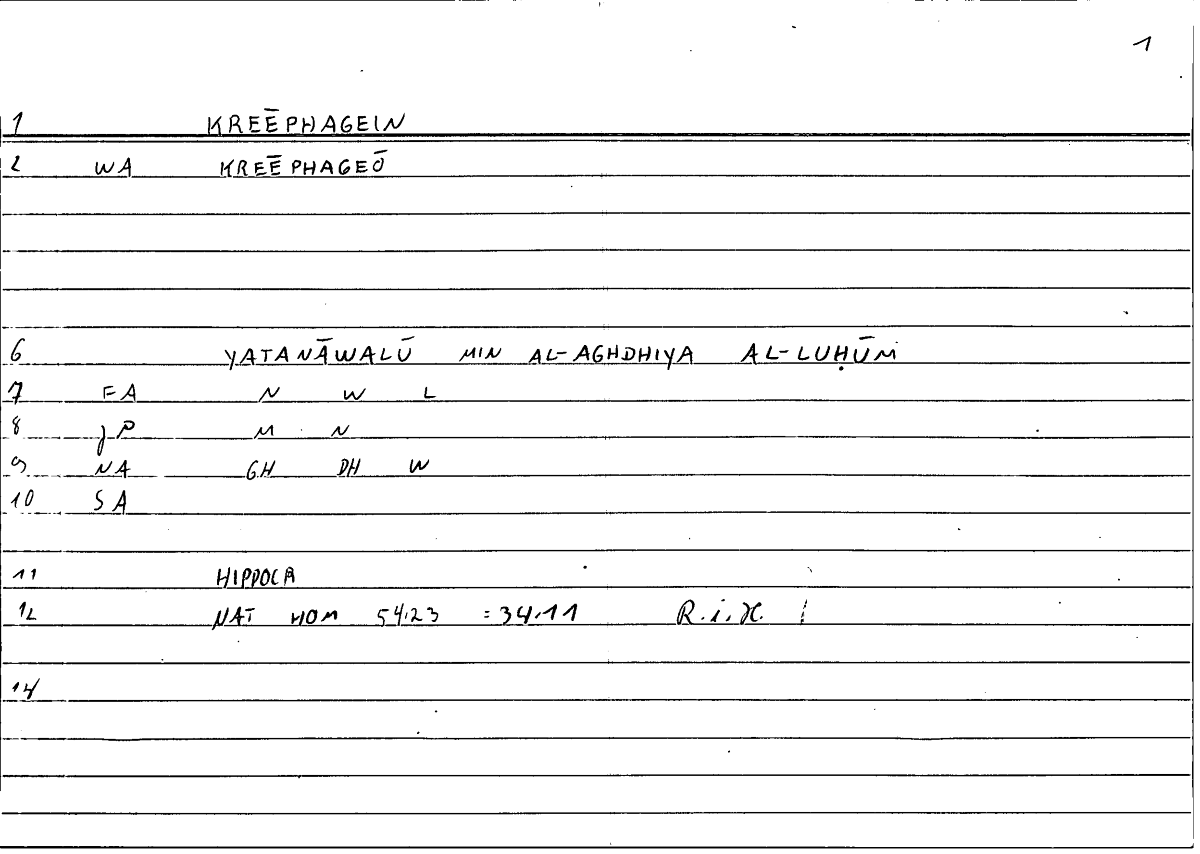 1
1 KREĒPHAGEIN
2 WA KREĒPHAGEŌ
6 YATANĀWALŪ MIN AL-AGHDHIYA AL-LUḤŪM
7 FA N W L
8 JP M N
9 NA GH DH W
10 SA
11 HIPPOCR
12 NAT HOM 54,23 = 34,11
14